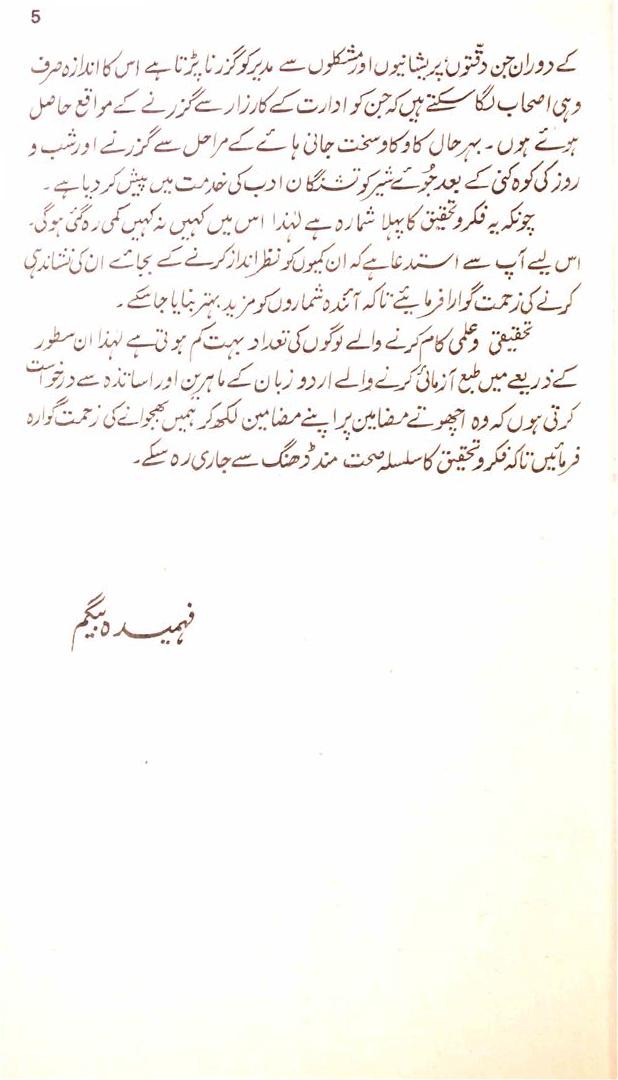 5
کے دوران جن دقّتوں، پریشانیوں اور مشکلوں سے مدیر کو گزرنا پڑتا ہے اس کا اندازہ صرف
وہی اصحاب لگا سکتے ہیں کہ جن کو ادارت کے کارزار سے گزرنے کے مواقع حاصل
ہوئے ہوں۔ بہر حال کاوکاو سخت جانی ہائے کے مراحل سے گزرنے اور شب و
روز کی کوہ کنی کے بعد جُوئے شیر کو تشنگان ادب کی خدمت میں پیش کر دیا ہے۔
چونکہ یہ فکر و تحقیق کا پہلا شمارہ ہے لہٰذا اس میں کہیں نہ کہیں کمی رہ گئی ہوگی۔
اس لیے آپ سے استدعا ہے کہ ان کمیوں کو نظر انداز کرنے کے بجائے ان کی نشاندہی
کرنے کی زحمت گوارا فرمایئے تاکہ آئندہ شماروں کو مزید بہتر بنایا جا سکے۔
تحقیقی و علمی کام کرنے والے لوگوں کی تعداد بہت کم ہوتی ہے لہٰذا ان سطور
کے ذریعے میں طبع آزمائی کرنے والے اردو زبان کے ماہرین اور اساتذہ سے درخواست
کرتی ہوں کہ وہ اچھوتے مضامین پر اپنے مضامین لکھ کر ہمیں بھجوانے کی زحمت گوارہ
فرمائیں تاکہ فکر و تحقیق کا سلسلہ صحت مند ڈھنگ سے جاری رہ سکے۔
فہمیدہ بیگم